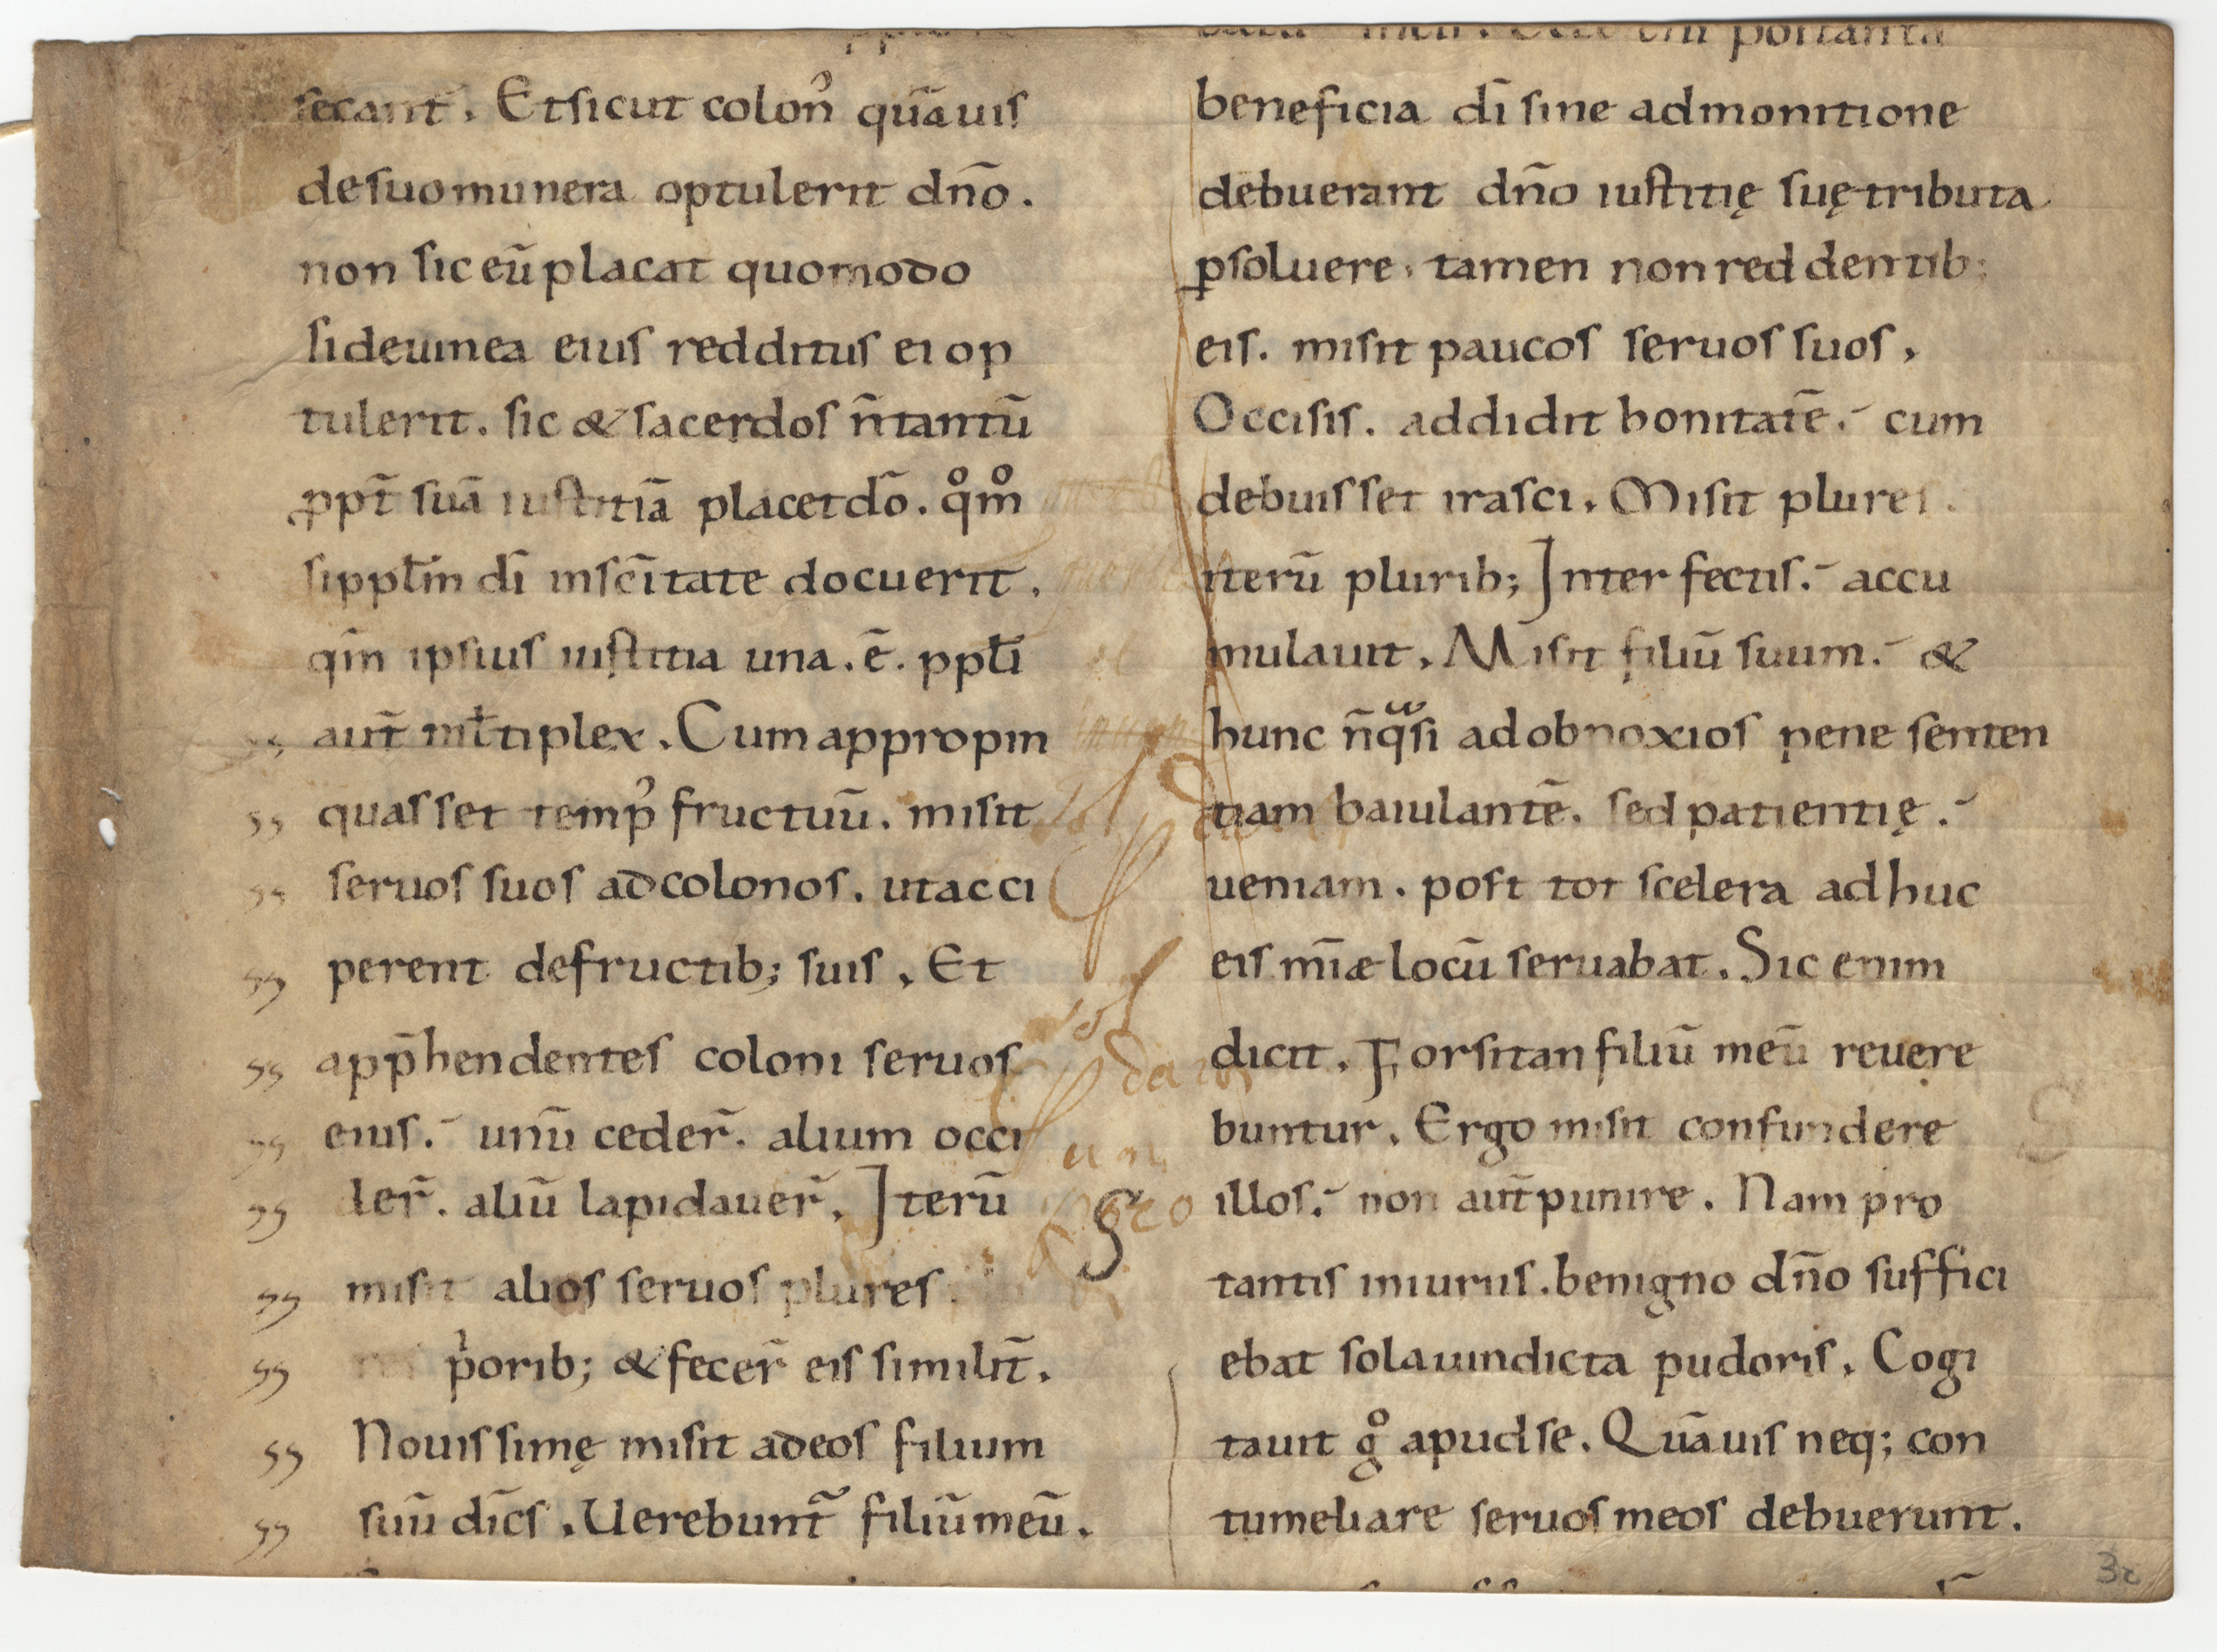 secant. Et sicut colonꝰ quãuis
de suo munera optulerit dño.
non sic eũ placat quomodo
si de uinea eius redditus ei op
tulerit. sic & sacerdos ñ tantũ
ꝓpt̃ suã iustitiã placet dõ. qͦmͦ
si ppłm dĩ in sc̃itate docuerit.
qm̃ ipsius iustitia una .ẽ. ppłi
aut̃ mƚtiplex. Cum appropin
quasset tempꝰ fructuũ. misit
seruos suos ad colonos. ut acci
perent de fructib; suis. Et
app̃hendentes coloni seruos
eius. unũ ceder̃. alium occi
der̃. aliũ lapidauer̃. Iterũ
misit alios seruos plures
pͥorib; & fecer̃ eis similit̃.
Nouissimę misit ad eos filium
suũ dic̃s. Uerebunt̃ filiũ meũ.
beneficia dĩ sine admonitione
debuerant dño iustitię suę tributa
ꝑsoluere. tamen non reddentib;
eis. misit paucos seruos suos.
Occisis. addidit bonitatẽ. cum
debuisset irasci. Misit plures.
iterũ plurib; Interfectis. accu
mulauit. Misit filiũ suum. &
hunc ñ qͣsi ad obnoxios pene senten
tiam baiulantẽ. sed patientię.
ueniam. post tot scelera adhuc
eis mĩæ locũ seruabat. Sic enim
dicit. Forsitan filiũ meũ reuere
buntur. Ergo misit confundere
illos. non aut̃ punire. Nam pro
tantis iniuriis. benigno dño suffici
ebat sola uindicta pudoris. Cogi
tauit gͦ apud se. Quãuis neq; con
tumeliare seruos meos debuerunt.